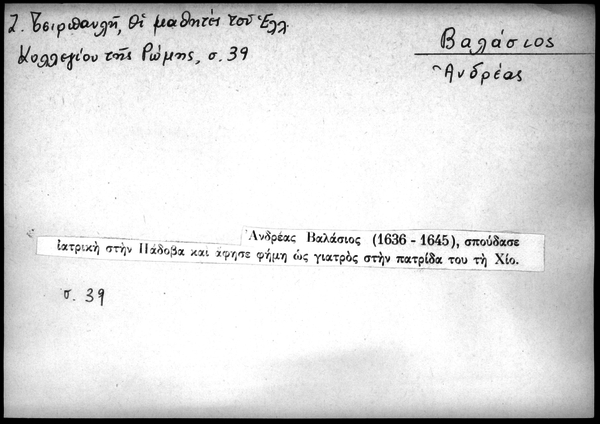 Ζ. Τσιρπανλῆ, Οἱ μαθητές τοῦ Ἑλλ.
Κολλεγίου τῆς Ρώμης, σ. 39
Βαλάσιος
Ἀνδρέας
Ἀνδρέας Βαλάσιος (1636 - 1645), σπούδασε
ἰατρικὴ στὴν Πάδοβα καὶ ἄφησε φήμη ὡς γιατρὸς στὴν πατρίδα του τὴ Χίο.
σ. 39